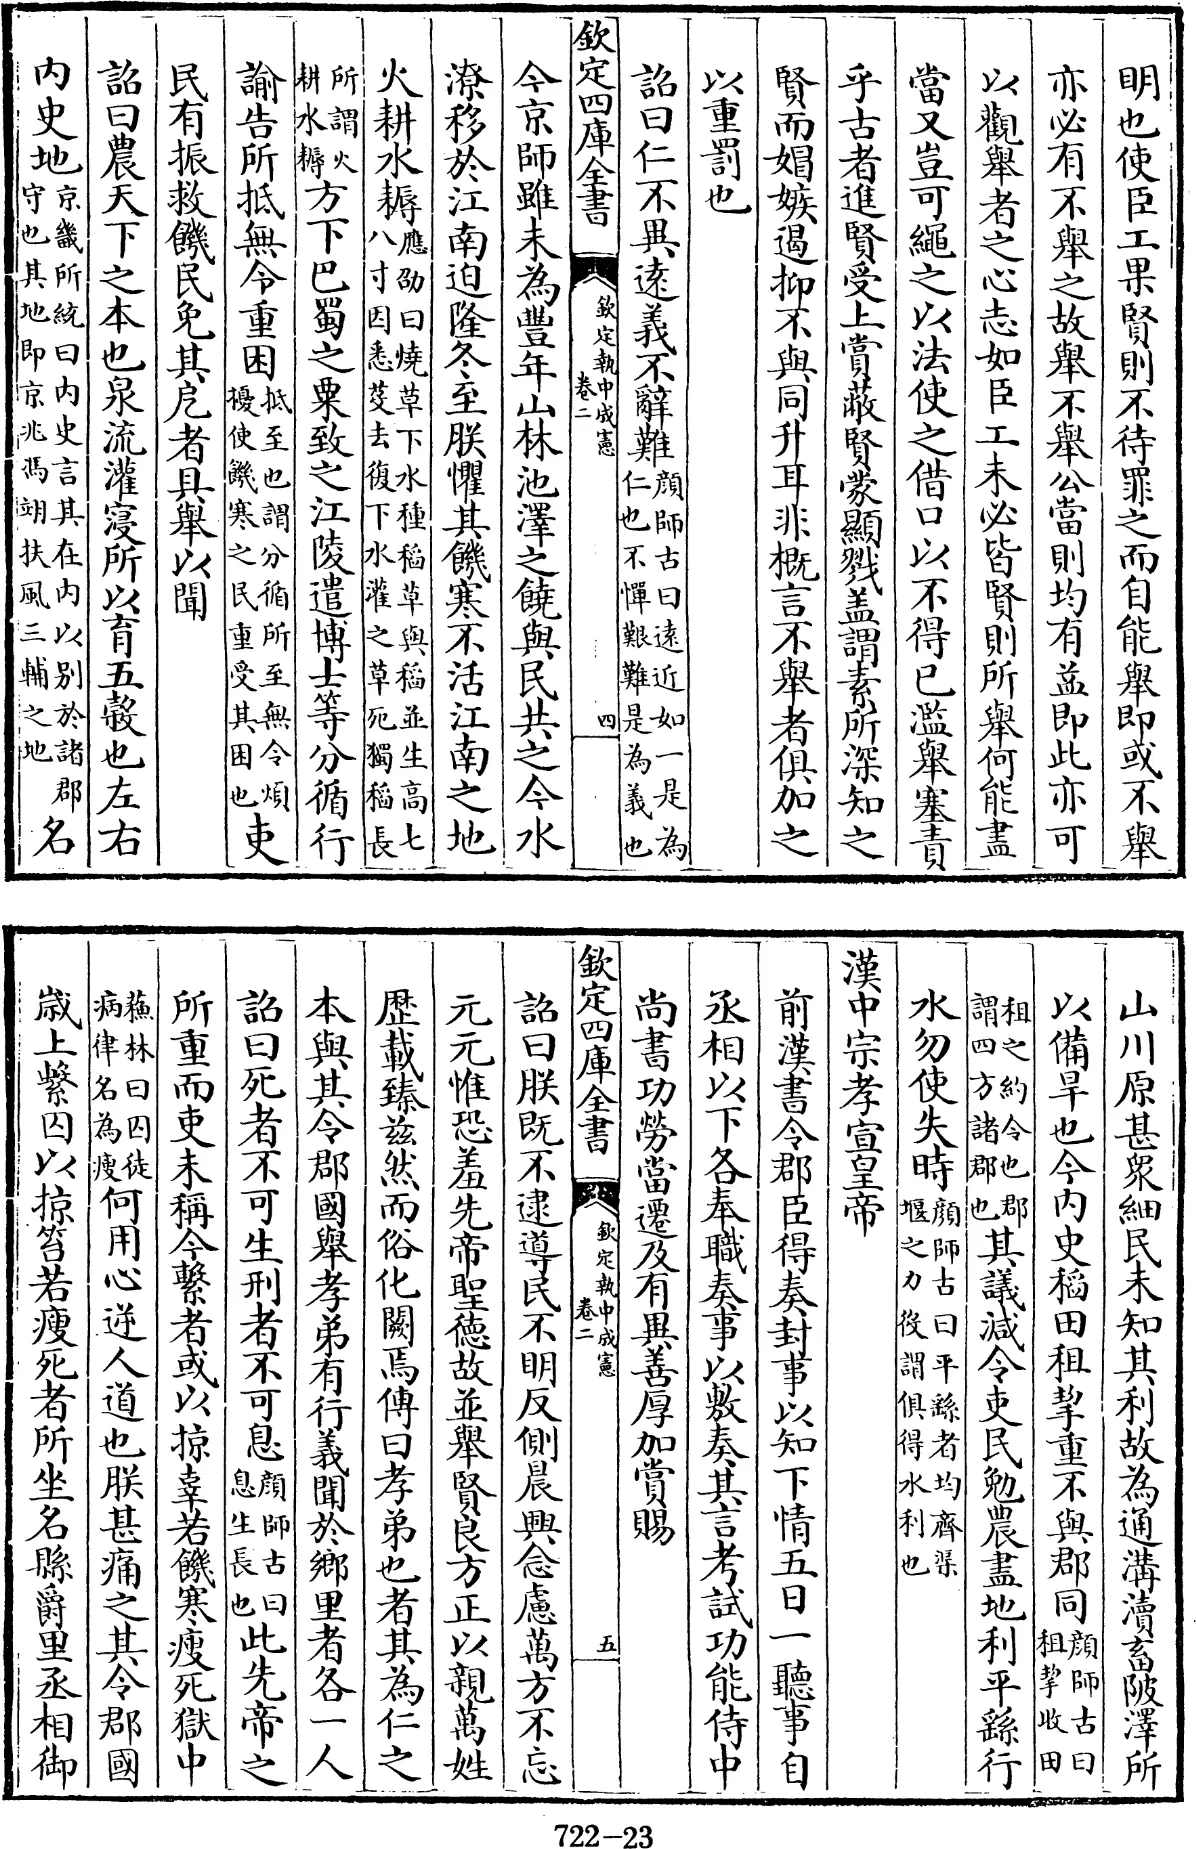 明也使臣工果賢則不待罪之而自能舉即或不舉
亦必有不舉之故舉不舉公當則均有益即此亦可
以觀舉者之心志如臣工未必皆賢則所舉何能盡
當又豈可繩之以法使之借口以不得已濫舉塞責
乎古者進賢受上賞蔽賢蒙顯戮盖謂素所深知之
賢而娼嫉遏抑不與同升耳非概言不舉者俱加之
以重罰也
詔曰仁不異遠義不辭難顔師古曰遠近如一是為仁也不憚艱難是為義也
欽定四庫全書
欽定執中成憲
卷二
四
今京師雖未為豐年山林池澤之饒與民共之今水
潦移於江南迫隆冬至朕懼其饑寒不活江南之地
火耕水耨應劭曰燒草下水種稻草與稻並生高七八寸因悉芟去復下水灌之草死獨稻長
所謂火耕水耨方下巴蜀之粟致之江陵遣博士等分循行
諭告所抵無令重困抵至也謂分循所至無令煩擾使饑寒之民重受其困也吏
民有振救饑民免其戹者具舉以聞
詔曰農天下之本也泉流灌寖所以育五穀也左右
内史地京畿所統曰内史言其在内以别於諸郡守也其地即京兆馮翊扶風三輔之地名
山川原甚衆細民未知其利故為通溝瀆畜陂澤所
以備旱也今内史稻田租挈重不與郡同顔師古曰租挈收田
租之約令也郡謂四方諸郡也其議減令吏民勉農盡地利平繇行
水勿使失時顔師古曰平繇者均齊渠堰之力役謂俱得水利也
漢中宗孝宣皇帝
前漢書令郡臣得奏封事以知下情五日一聽事自
丞相以下各奉職奏事以敷奏其言考試功能侍中
尚書功勞當遷及有異善厚加賞賜
欽定四庫全書
欽定執中成憲
卷二
五
詔曰朕既不逮導民不明反側晨興念慮萬方不忘
元元惟恐羞先帝聖德故並舉賢良方正以親萬姓
歴載臻兹然而俗化闕焉傳曰孝弟也者其為仁之
本與其令郡國舉孝弟有行義聞於鄉里者各一人
詔曰死者不可生刑者不可息顔師古曰息生長也此先帝之
所重而吏未稱今繫者或以掠辜若饑寒瘦死獄中
蘇林曰囚徒病律名為瘦何用心逆人道也朕甚痛之其令郡國
歲上繫囚以掠笞若瘦死者所坐名縣爵里丞相御
722-23